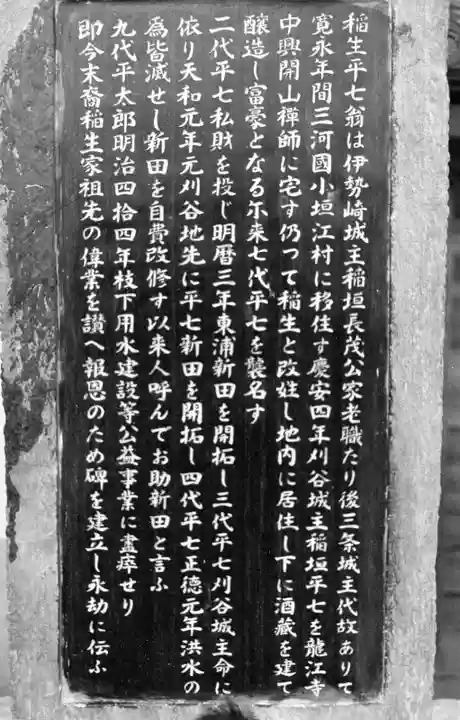 稲生平七翁は伊勢崎城主稲垣長茂公家老職たり後三条城主代故ありて
寛永年間三河國小垣江村に移住す慶安四年刈谷城主稲垣平七を龍江寺
中興開山禅師に宅す仍つて稲生と改姓し地内に居住し下に酒蔵を建て
醸造し富豪となる尓来七代平七を襲名す
二代平七私財を投じ明暦三年東浦新田を開拓し三代平七刈谷城主命に
依り天和元年元刈谷地先に平七新田を開拓し四代平七正徳元年洪水の
為皆滅せし新田を自費改修す以来人呼んでお助新田と言ふ
九代平太郎明治四拾四年枝下用水建設等公益事業に盡瘁せり
即今末裔稲生家祖先の偉業を讃へ報恩のため碑を建立し永劫に伝ふ